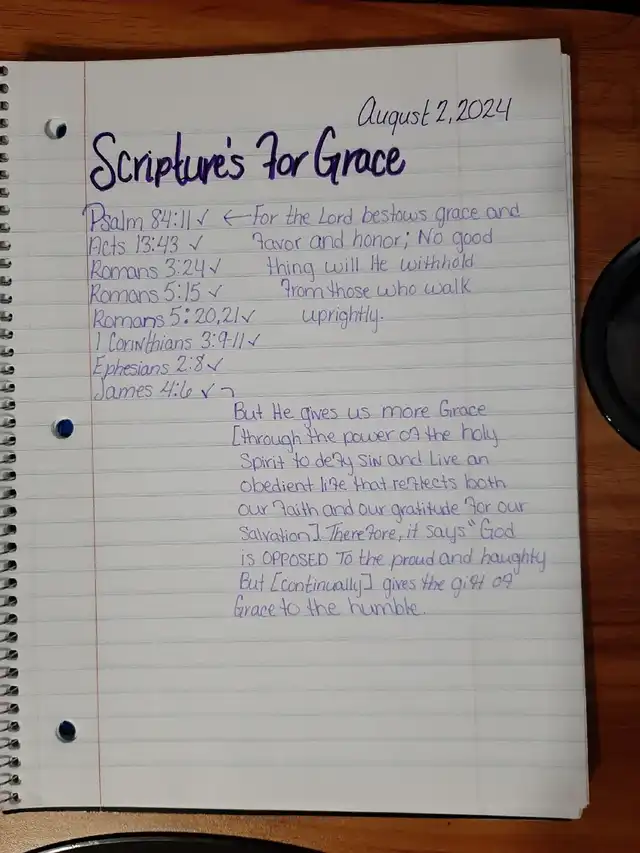 August 2, 2024
Scripture's For Grace
Psalm 84:11 ✓ ← For the Lord bestows grace and
Acts 13:43 ✓ Favor and honor; No good
Romans 3:24 ✓ thing will He withhold
Romans 5:15 ✓ From those who walk
Romans 5:20,21 ✓ uprightly.
1 Corinthians 3:9-11 ✓
Ephesians 2:8 ✓
James 4:6 ✓ ¬
But He gives us more Grace
[through the power of the holy
Spirit to defy sin and Live an
obedient life that reflects both
our Faith and our gratitude For our
Salvation]. Therefore, it says "God
is OPPOSED To the proud and haughty
But [continually] gives the gift of
Grace to the humble.